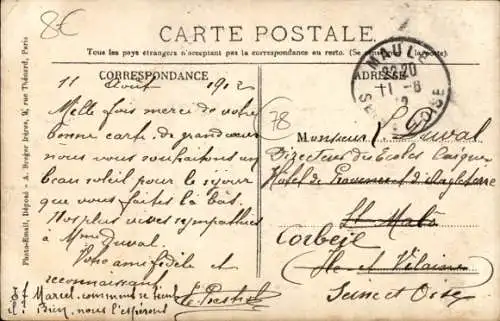 8€
CARTE POSTALE.
Tous les pays étrangers n'acceptent pas la correspondance au recto. (Se renseigner à la poste)
CORRESPONDANCE
ADRESSE
MAULE
22 20
11-8
12
SEINE ET OISE
78
11 Août 1912
Mille fois merci de votre
bonne carte. de grand cœur
nous vous souhaitons un
beau soleil pour le séjour
que vous faites là bas.
Nos plus vives sympathies
à Mme Duval.
Votre ami fidèle et
reconnaissant
Marcel, comme se tient
bien, nous l'espérons
Monsieur L. Duval
Directeur des Ecoles
Hôtel de Provence & d'Angleterre
St Malo
Corbeil
Ille et Vilaine
Seine et Oise
Photo-Email, Déposé - A. Breger frères, 9, rue Thénard, Paris